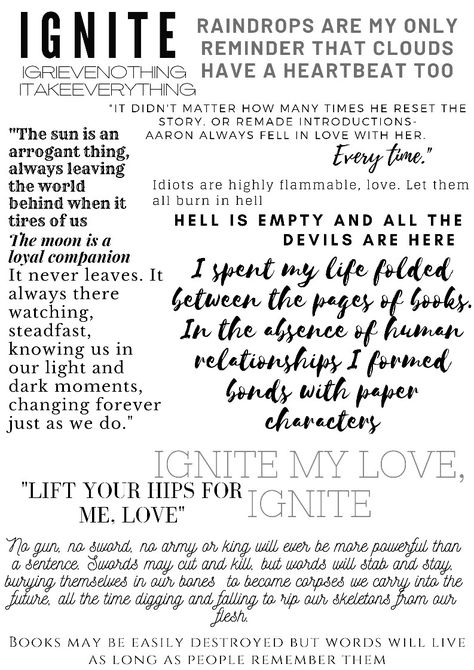 IGNITE
IGRIEVENOTHING
ITAKEEVERYTHING
RAINDROPS ARE MY ONLY
REMINDER THAT CLOUDS
HAVE A HEARTBEAT TOO
"IT DIDN'T MATTER HOW MANY TIMES HE RESET THE
STORY. OR REMADE INTRODUCTIONS-
AARON ALWAYS FELL IN LOVE WITH HER.
Every time."
"The sun is an
arrogant thing,
always leaving
the world
behind when it
tires of us
The moon is a
loyal companion
It never leaves. It
always there
watching,
steadfast,
knowing us in
our light and
dark moments,
changing forever
just as we do."
Idiots are highly flammable, love. Let them
all burn in hell
HELL IS EMPTY AND ALL THE
DEVILS ARE HERE
I spent my life folded
between the pages of books.
In the absence of human
relationships I formed
bonds with paper
characters
IGNITE MY LOVE,
IGNITE
"LIFT YOUR HIPS FOR
ME, LOVE"
No gun, no sword, no army or king will ever be more powerful than
a sentence. Swords may cut and kill, but words will stab and stay,
burying themselves in our bones to become corpses we carry into the
future, all the time digging and falling to rip our skeletons from our
flesh.
BOOKS MAY BE EASILY DESTROYED BUT WORDS WILL LIVE
AS LONG AS PEOPLE REMEMBER THEM